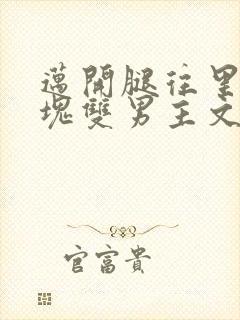 邁開腿往里
塊雙男主文
官富貴